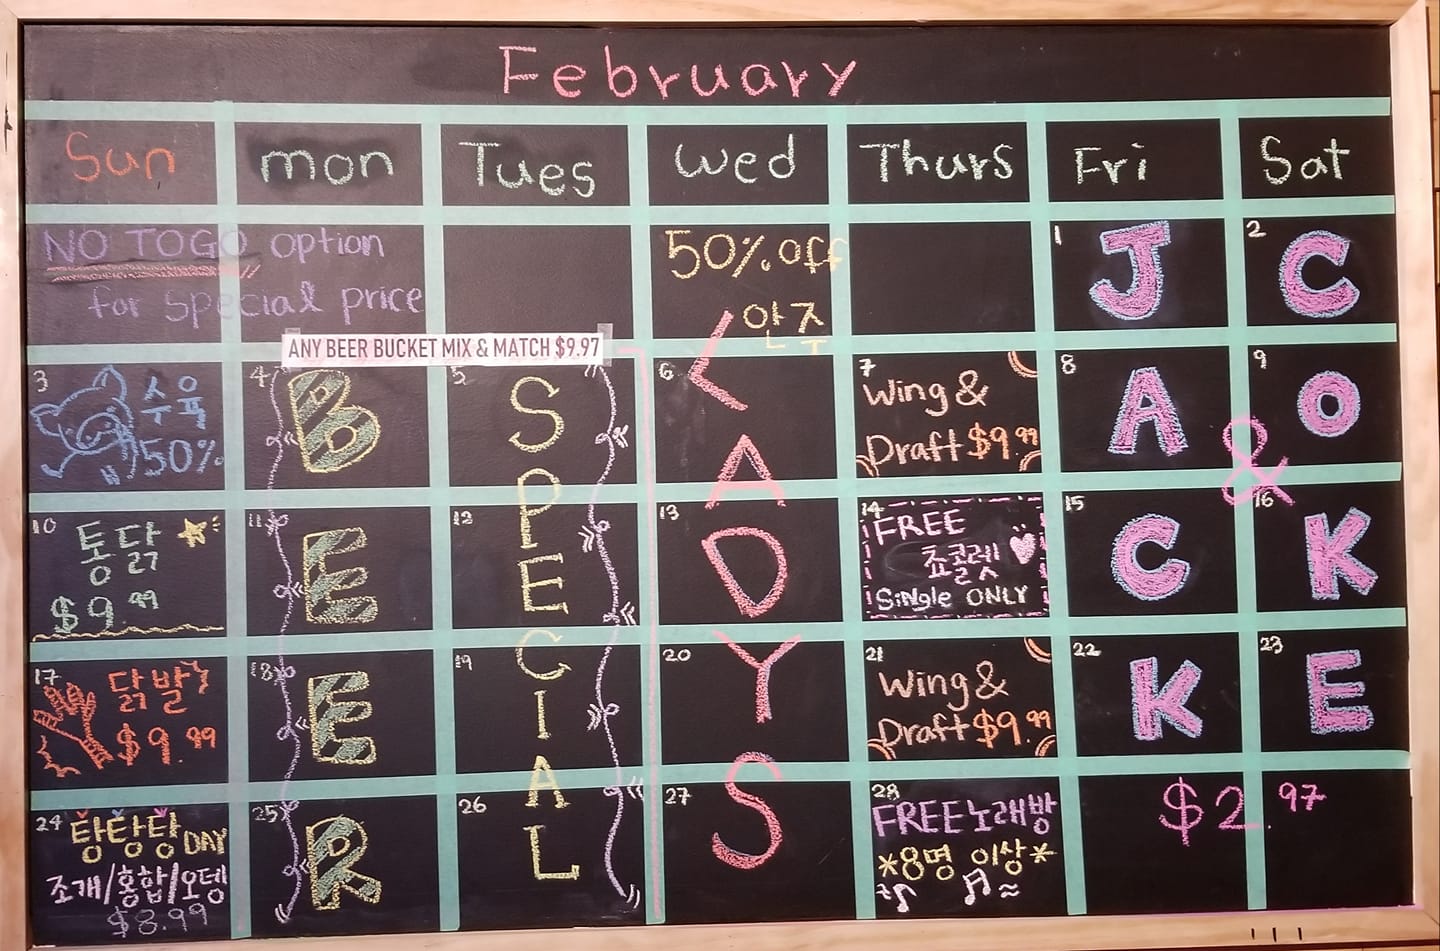 February
Sun mon Tues Wed Thurs Fri Sat
NO TOGO option
for special price
50% off
안주
1 J
2 C
ANY BEER BUCKET MIX & MATCH $9.97
3 수육
50%
4 B
5 S
6 L
7 Wing &
Draft $9.99
8 A
&
9 O
10 통닭
$9.99
11 E
12 PE
13 D
14 FREE
쵸콜렛
Single ONLY
15 C
16 K
17 닭발
$9.99
18 E
19 CI
20 Y
21 Wing &
Draft $9.99
22 K
23 E
24 탕탕탕 DAY
조개/홍합/오뎅
$8.99
25 R
26 AL
27 S
28 FREE 노래방
*8명 이상*
$2.97